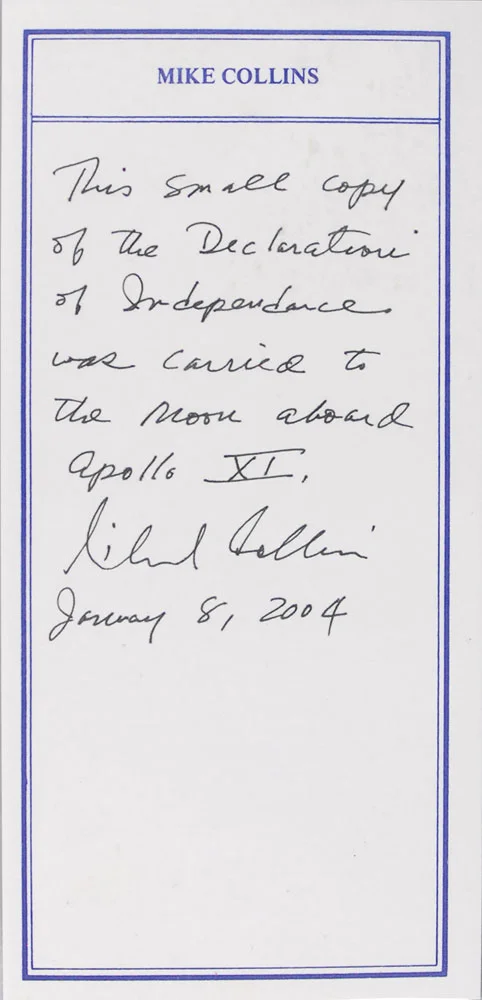 MIKE COLLINS
This small copy
of the Declaration
of Independance
was carried to
the Moon aboard
Apollo XI.
Michael Collins
January 8, 2004